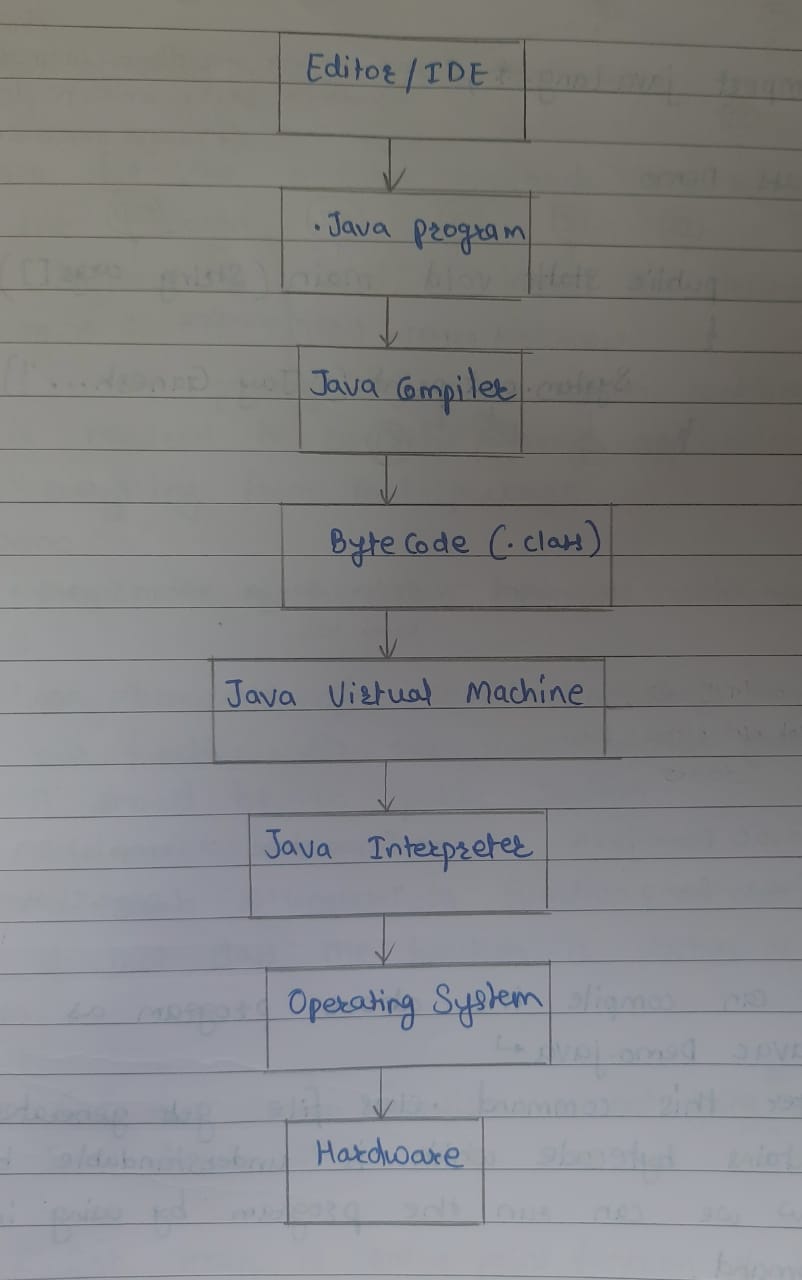 Editor/IDE
.Java program
Java Compiler
Byte Code (.class)
Java Virtual Machine
Java Interpreter
Operating System
Hardware